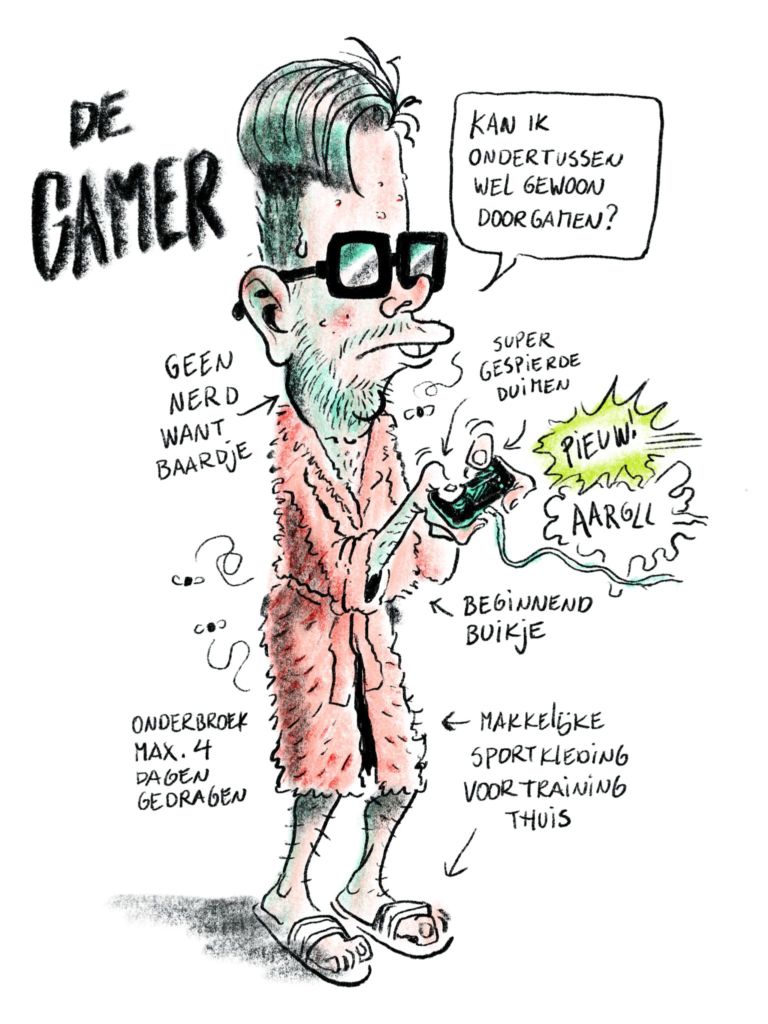 DE
GAMER
KAN IK
ONDERTUSSEN
WEL GEWOON
DOORGAMEN?
GEEN
NERD
WANT
BAARDJE
SUPER
GESPIERDE
DUIMEN
PIEUW!
AARGLL
BEGINNEND
BUIKJE
ONDERBROEK
MAX. 4
DAGEN
GEDRAGEN
MAKKELIJKE
SPORTKLEDING
VOOR TRAINING
THUIS